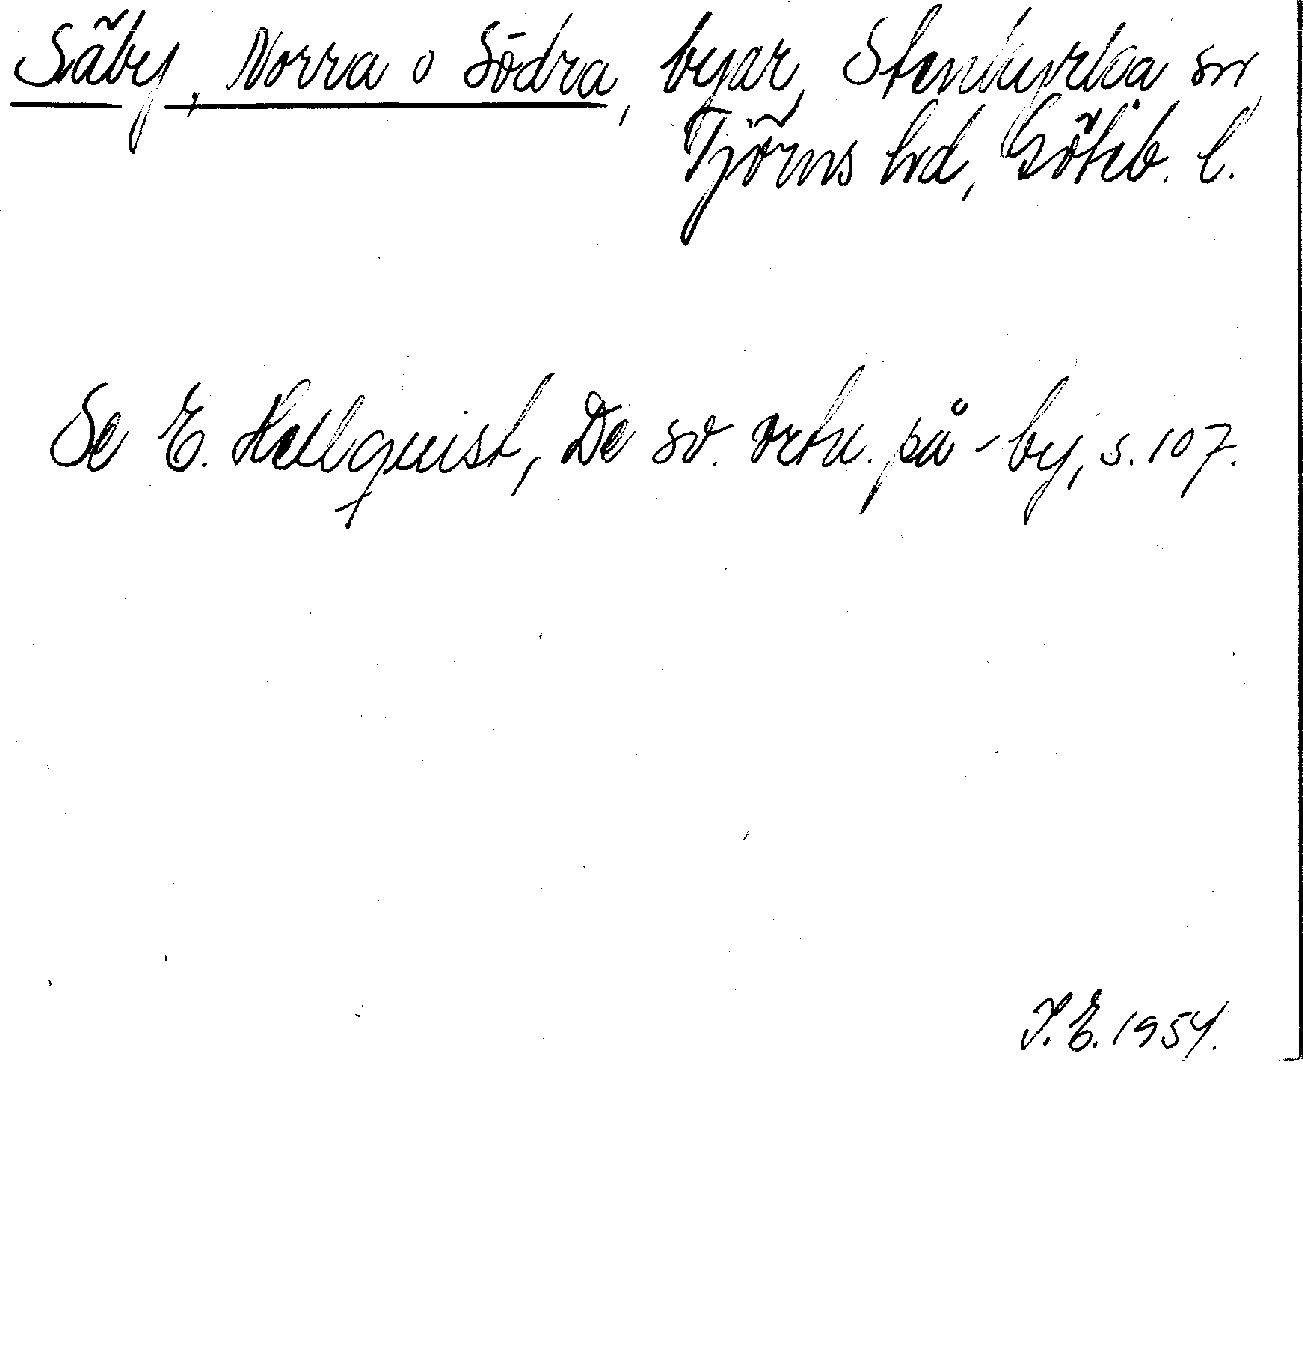 Säby, Norra o Södra, byar, Stenkyrka sn
Tjörns hd, Göteb. l.
Se E. Hellquist, De sv. ortn. på -by, s. 107.
I. E. 1954.